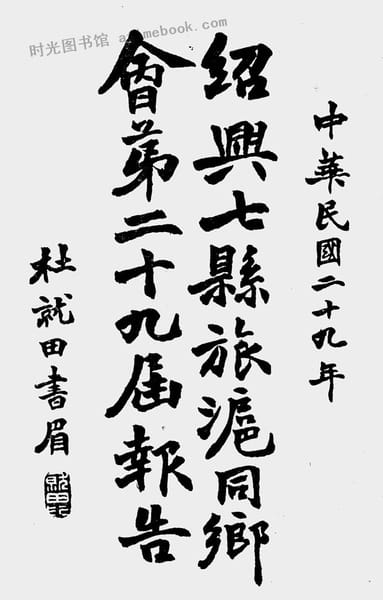 时光图书馆 atimebook.com
中華民國二十九年
紹興七縣旅滬同鄉
會第二十九屆報告
杜就田書眉